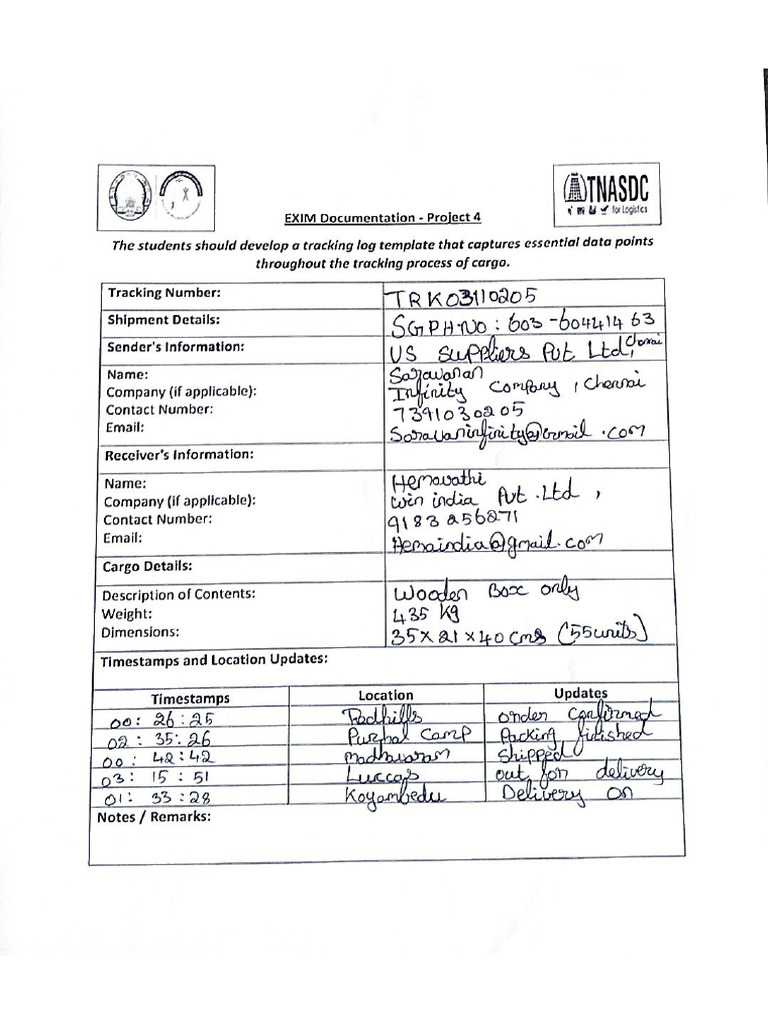 TNASDC
for Logistics
EXIM Documentation - Project 4
The students should develop a tracking log template that captures essential data points
throughout the tracking process of cargo.
Tracking Number: TRK03110205
Shipment Details: SGPH-NO : 603-60441463
Sender's Information: US Suppliers Pvt Ltd, Chennai
Name: Saravanan
Company (if applicable): Infinity Company, Chennai
Contact Number: 7391030205
Email:
Receiver's Information:
Name: Hemavathi
Company (if applicable): Win india Pvt. Ltd,
Contact Number: 9183256271
Email: Hemaindia@gmail.com
Cargo Details:
Description of Contents: Wooden Box only
Weight: 435 kg
Dimensions: 35 x 21 x 40 cms (55 units)
Timestamps and Location Updates:
Timestamps Location Updates
00: 26 : 25 Redhills order confirmed
02 : 35 : 26 Puzhal Camp Packing finished
00 : 42 : 42 madhavaram Shipped
03 : 15 : 51 Luccas out for delivery
01 : 33 : 28 Koyambedu Delivery on
Notes / Remarks: